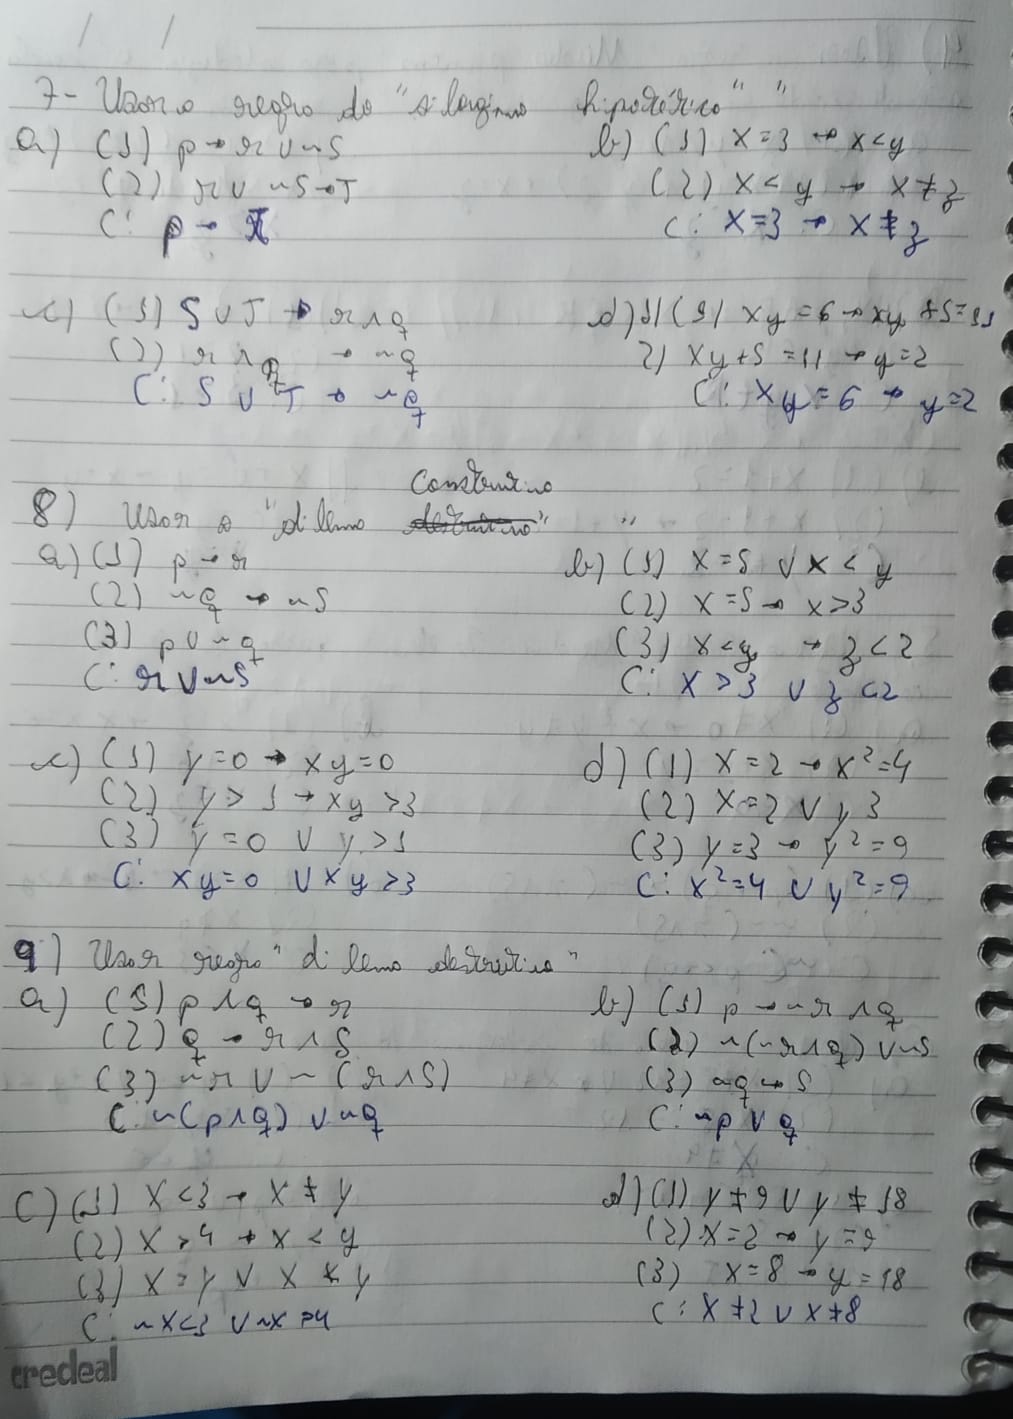 / /
7- Usar a regra do "silogismo hipotético" "
a) (1) p → r ∨ ~s
(2) r ∨ ~s → T
C: p → T
b) (1) x=3 → x<y
(2) x<y → x≠z
C: x=3 → x≠z
c) (1) S ∨ T → r ∧ q
(2) r ∧ q → ~q
C: S ∨ T → ~q
d) (1) xy=6 → xy+5=11
2) xy+5=11 → y=2
C: xy=6 → y=2
Construtivo
8) Usar o "dilema destrutivo" "
a) (1) p → r
(2) ~q → ~s
(3) p ∨ ~q
C: r ∨ ~s
b) (1) x=5 ∨ x<y
(2) x=5 → x>3
(3) x<y → z<2
C: x>3 ∨ z<2
c) (1) y=0 → xy=0
(2) y>1 → xy>3
(3) y=0 ∨ y>1
C: xy=0 ∨ xy>3
d) (1) x=2 → x²=4
(2) x=2 ∨ y 3
(3) y=3 → y²=9
C: x²=4 ∨ y²=9
9) Usar regra "dilema destrutivo"
a) (1) p ∧ q → r
(2) q → r ∧ s
(3) ~r ∨ ~(r ∧ s)
C: ~(p ∧ q) ∨ ~q
b) (1) p → ~r ∧ q
(2) ~(~r ∧ q) ∨ ~s
(3) ~q → s
C: ~p ∨ q
C) (1) x<3 → x≠y
(2) x>4 → x<y
(3) x=y ∨ x≮y
C: ~x<3 ∨ ~x>4
d) (1) y≠9 ∨ y≠18
(2) x=2 → y=9
(3) x=8 → y=18
C: x≠2 ∨ x≠8
credeal